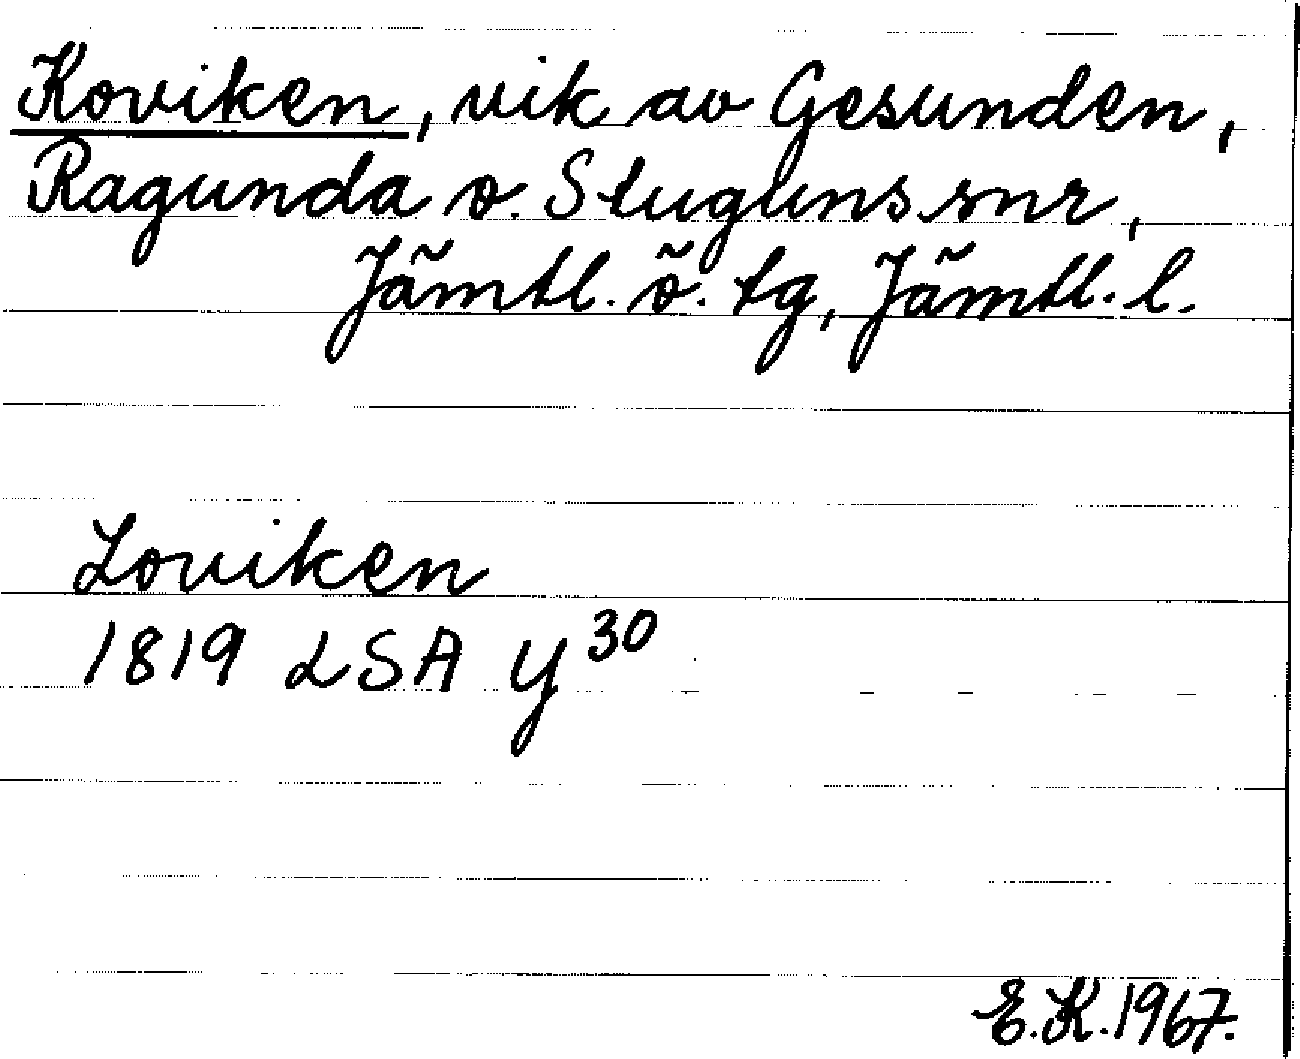 Koviken, vik av Gesunden,
Ragunda o. Stuguns snr,
Jämtl. ö. tg, Jämtl. l.
Loviken
1819 LSA Y³⁰
E.K.1967.